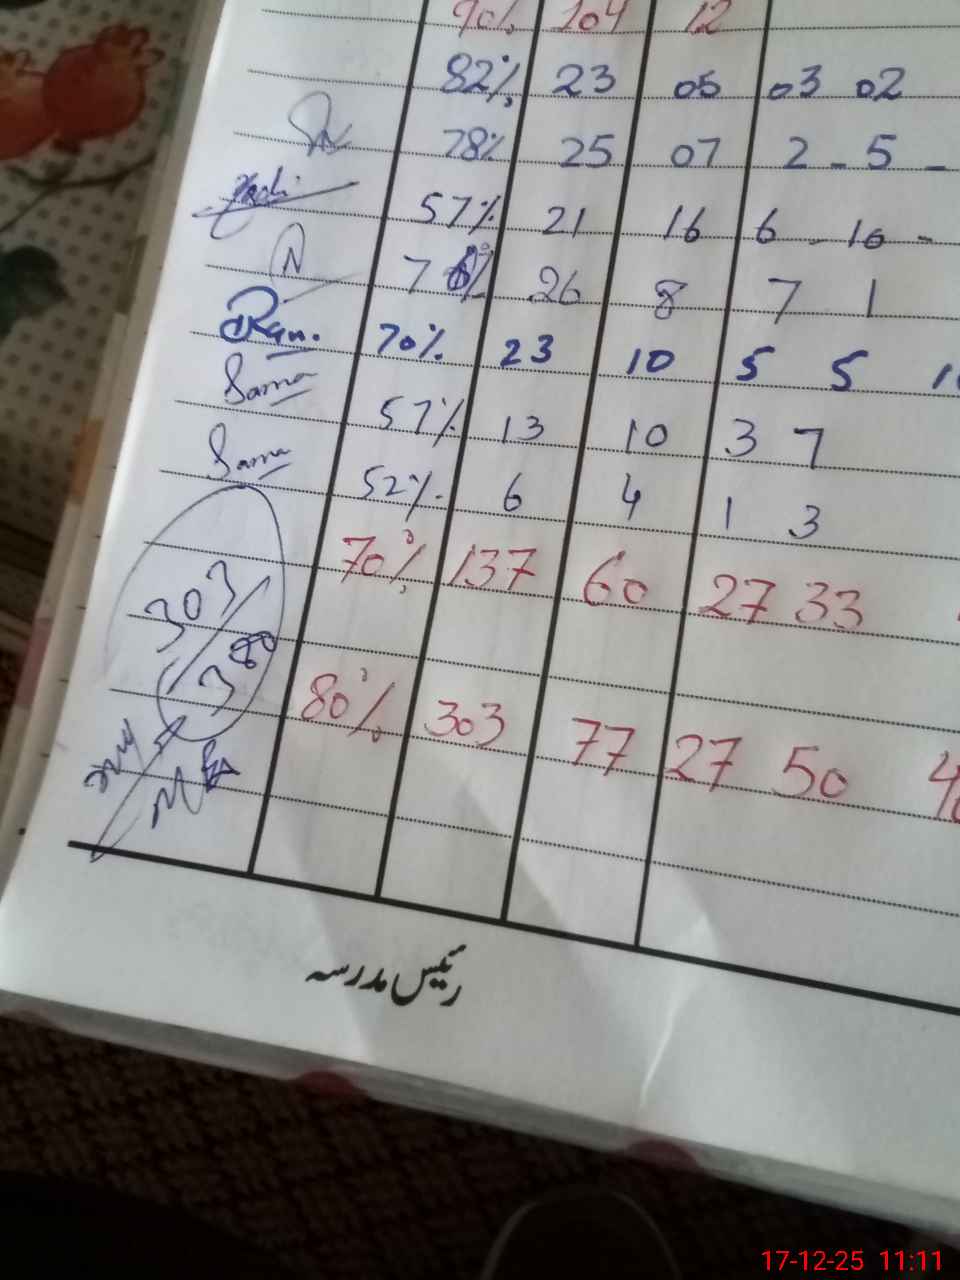 90% 104 12
82% 23 05 03 02
78% 25 07 2 - 5 -
57% 21 16 6 - 10 -
76% 26 8 7 1
70% 23 10 5 5
Sama 57% 13 10 3 7
Sama 52% 6 4 1 3
70% 137 60 27 33
303/380
80% 303 77 27 50
رئیس مدرسہ
17-12-25 11:11